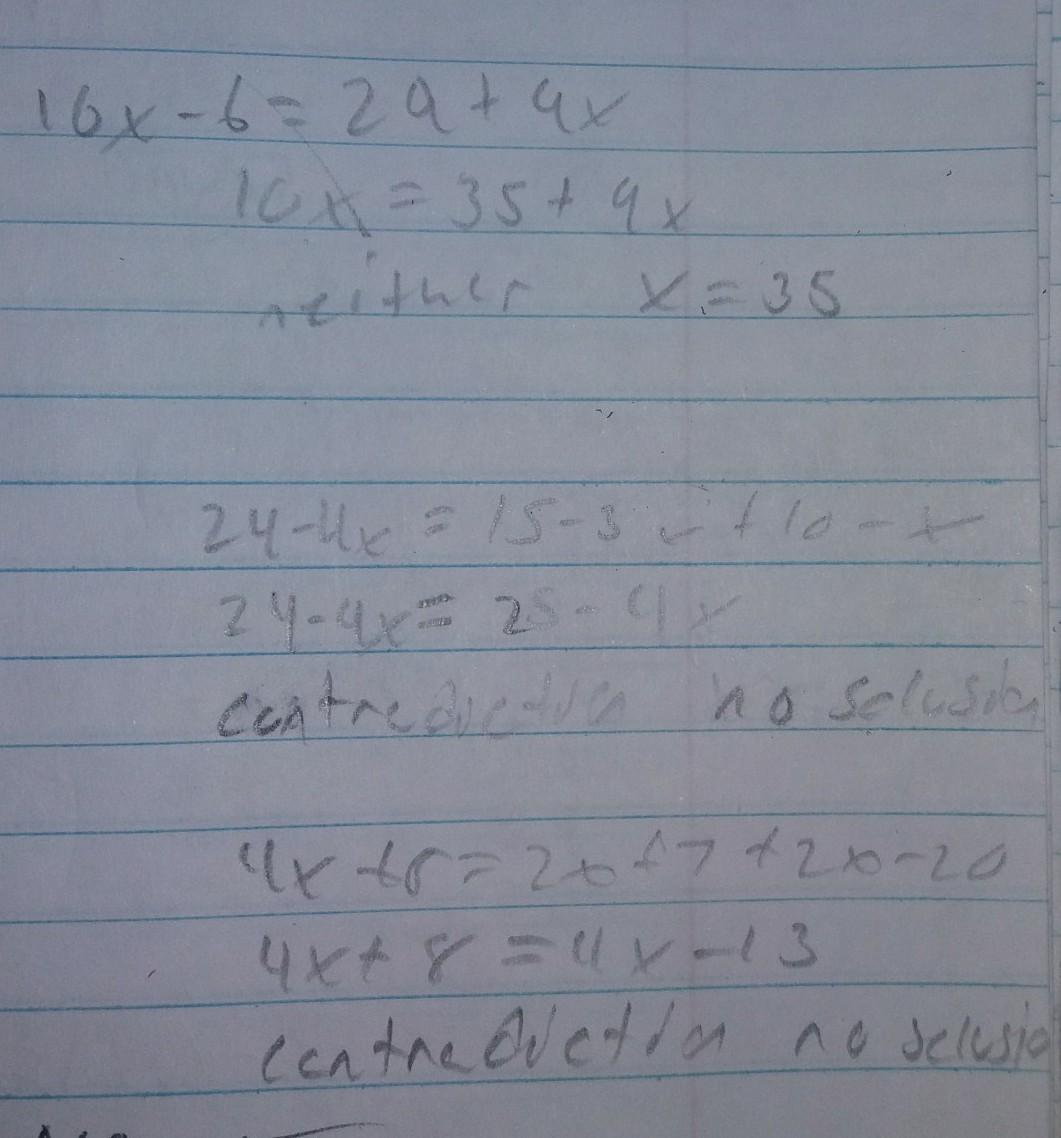 10x - 6 = 29 + 9x
10x = 35 + 9x
neither x = 35
24 - 4x = 15 - 3x + 10 - x
24 - 4x = 25 - 4x
contradiction no solusion
4x + 8 = 2x + 7 + 2x - 20
4x + 8 = 4x - 13
contradiction no solusio